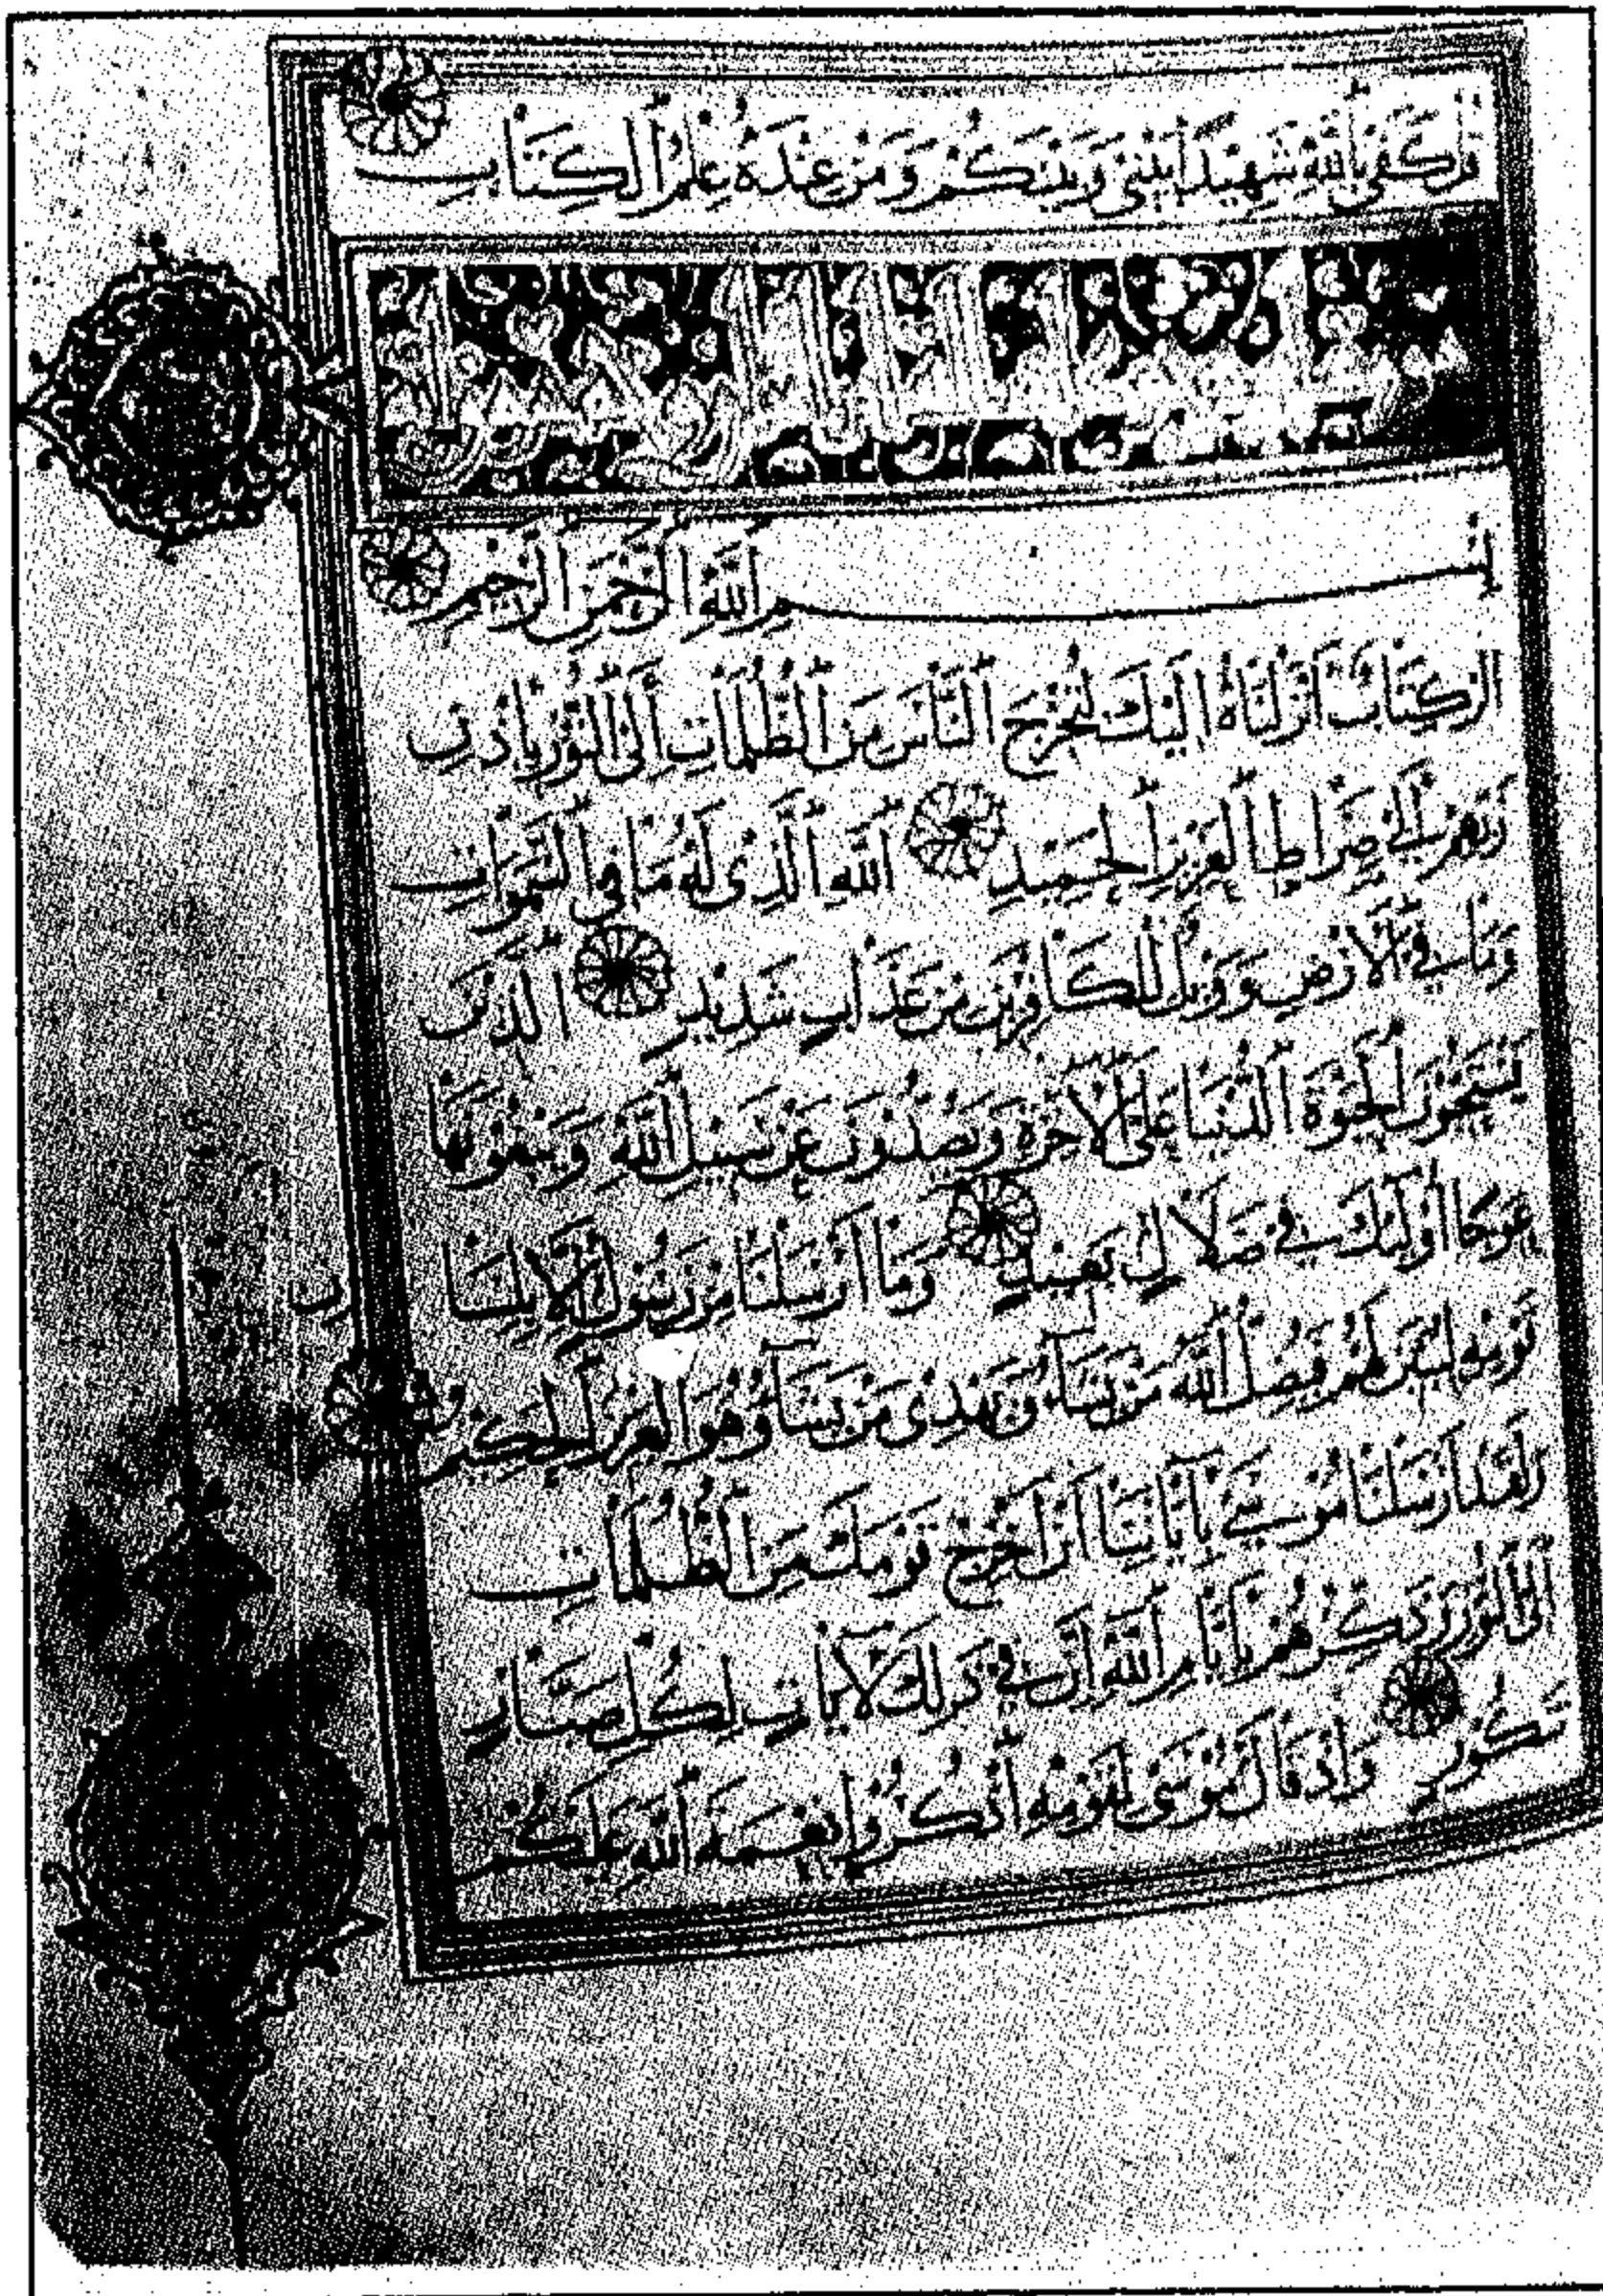 قل كفى بالله شهيدا بيني وبينكم ومن عنده علم الكتاب
بسم الله الرحمن الرحيم
الر كتاب أنزلناه إليك لتخرج الناس من الظلمات إلى النور بإذن
ربهم إلى صراط العزيز الحميد الله الذي له ما في السموات
وما في الأرض وويل للكافرين من عذاب شديد الذين
يستحبون الحيوة الدنيا على الآخرة ويصدون عن سبيل الله ويبغونها
عوجا أوليك في ضلال بعيد وما أرسلنا من رسول إلا بلسان
قومه ليبين لهم فيضل الله من يشاء ويهدي من يشاء وهو العزيز الحكيم و
لقد أرسلنا موسى بآياتنا أن أخرج قومك من الظلمات
إلى النور وذكرهم بأيام الله إن في ذلك لآيات لكل صبار
شكور وإذ قال موسى لقومه اذكروا نعمة الله عليكم